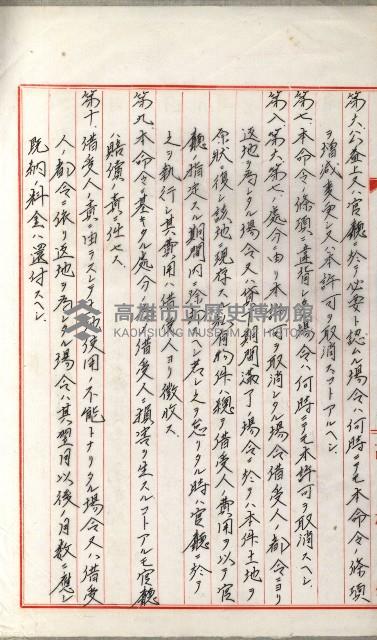 第六、公益上又ハ官廳ニ於テ必要ト認ムル場合ハ何時ニテモ本命令ノ條項
ヲ增減変更シ又ハ本許可ヲ取消スコトアルヘシ
第七、本命令ノ條項ニ違背シタル場合ハ何時ニテモ本許可ヲ取消スヘシ
第八、第六、第七ノ處分ニ由リ本 ヲ取消シタル場合借受人ノ都合ニヨリ
返地ヲ為シタル場合又ハ 期間滿了ノ場合ニ於テハ本件土地ヲ
原狀ニ復シ該地ニ現存 物件ハ總テ借受人ノ費用ヲ以テ官
廳ノ指定スル期間內ニ除 シ若シ之ヲ怠リタル時ハ官廳ニ於テ
之ヲ執行シ其費用ハ借受人ヨリ徵收ス
第九、本命令ニ基キタル處分 借受人ニ損害ヲ生スルコトアルモ官廳
ハ賠償ノ責ニ任セス
第十、借受人ノ責ニ由ラスシテ 使用ノ不能トナリタル場合又ハ借受
人ノ都合ニ依リ返地ヲ為 ル場合ハ其翌月以後ノ月數ニ應シ
既納ノ料金ハ還付スヘシ
高雄市立歷史博物館
KAOHSIUNG MUSEUM OF HISTORY